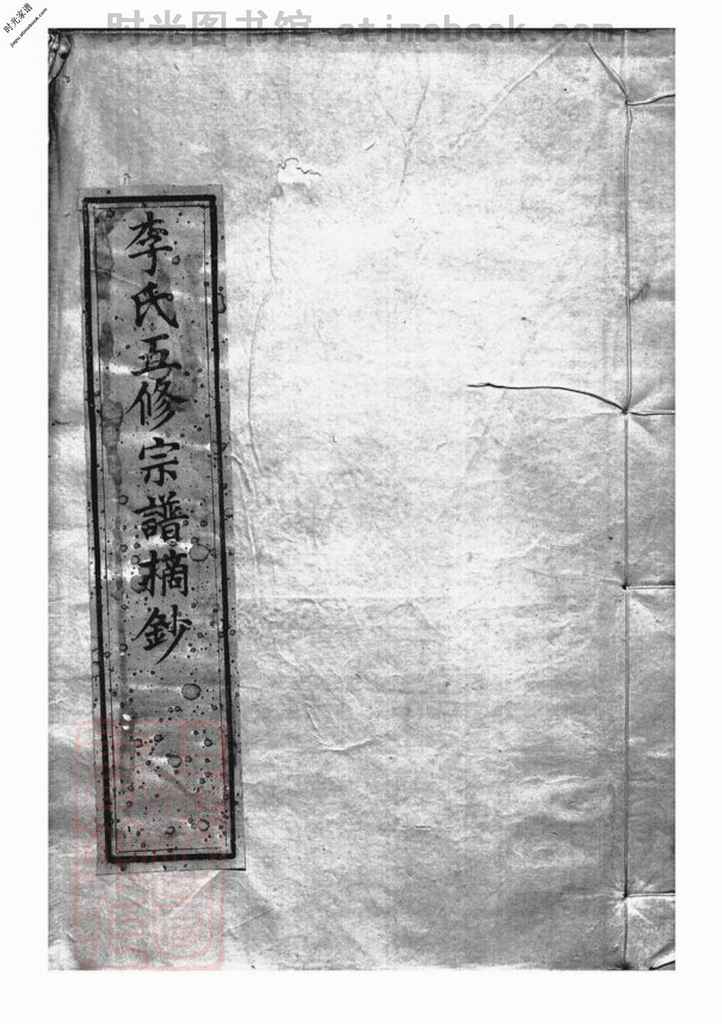 时光图书馆 atimebook.com
时光家谱
jiapu.atimebook.com
李氏五修宗譜摘鈔